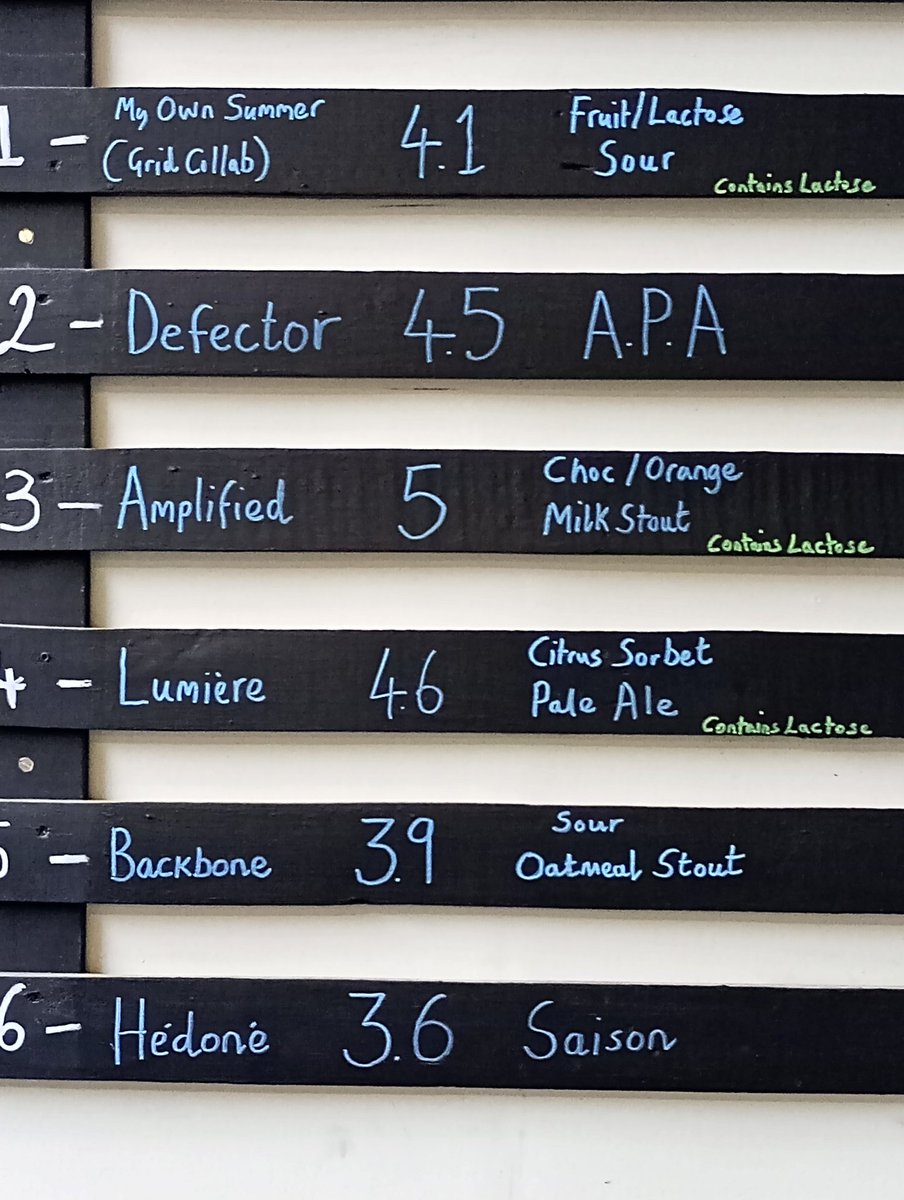 1 - My Own Summer 4.1 Fruit/Lactose
(Grid Collab) Sour
Contains Lactose
2 - Defector 4.5 A.P.A
3 - Amplified 5 Choc/Orange
Milk Stout
Contains Lactose
4 - Lumière 4.6 Citrus Sorbet
Pale Ale
Contains Lactose
5 - Backbone 3.9 Sour
Oatmeal Stout
6 - Hédoné 3.6 Saison